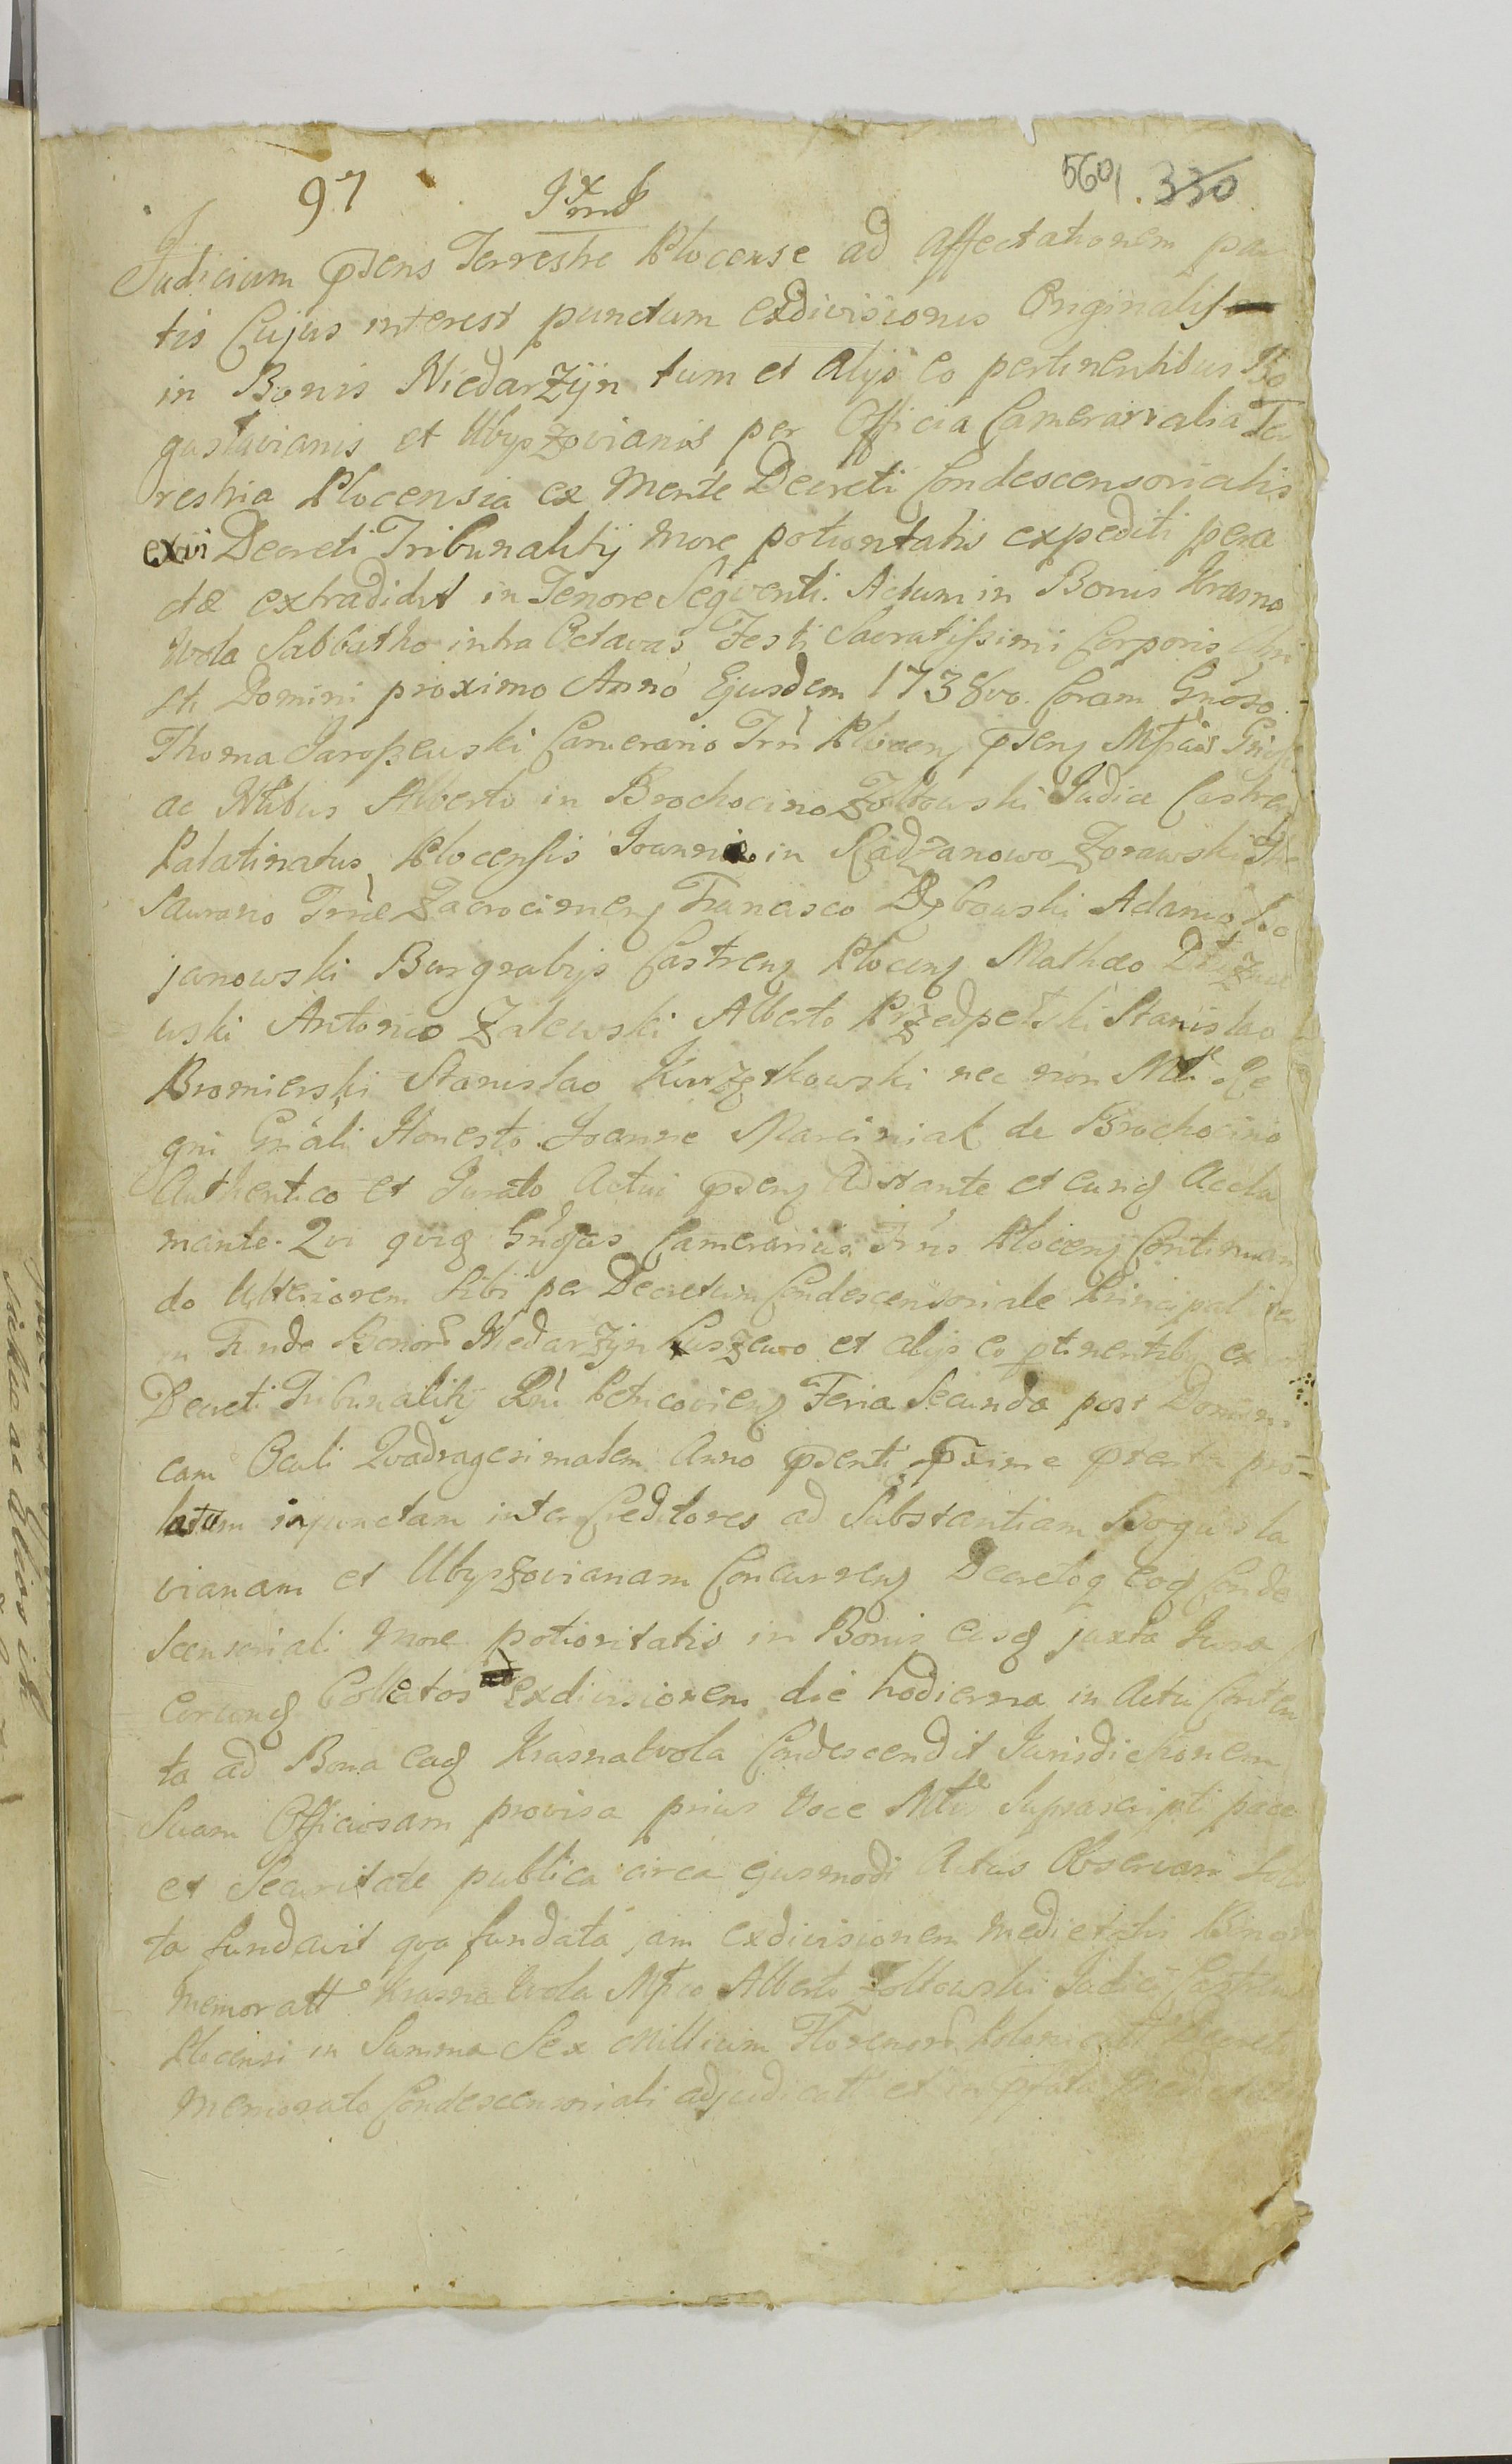 97
560. 330
Judicium pdens Terrestre Plocense ad affectationem par
tis Cujus interest punctum exdivisionis Originalis
in Bonis Niedarzÿn tum et alijs eo pertinentibus Bo
guslavianis et Ubyszovianis per Officia Camerarialia Ter
restria Plocensia ex Mente Decreti Condescensorialis
exvi Decreti Tribunalitij more potioritatis expediti pera
ctæ extradidit in Tenore Seqventi. Actum in Bonis Krasna
Wola Sabbatho intra Octavas Festi Sacratissimi Corporis Chri
sti Domini proximo Anno Ejusdem 1738vo. Coram Gnoso
Thoma Jaroszewski Camerario Trri Plocenę pdenę Mfcis Gnosis
ac Nobus Alberto in Brochocino Zołtowski Judice Castren
Palatinatus Plocensis Joanne in Radzanowo Zorawski The
saurario Trræ Zacrocimenę Francisco Dębowski Adamo
janowski Burgrabijs Castrenę Plocenę Mathæo
wski Antonio Zalewski Alberto Przedpełski Stanislao
Bromierski Stanislao Kurzętkowski nec non Mtli Re
gni Gnali Honesto Joanne Marciniak de Brochocino
Authentico et Jurato Actui pdenę Adstante et eunq Accla
mante. Qvi qvidę Gnosus Camerarius Trris Plocenę Continuan
do Ulteriorem Sibi per Decretum Condescensoriale Principaliter
in Fundo Bonor Niedarzÿn Kuszewo et alijs eo ptinentibę ex vi
Decreti Tribunalitij Rni Petricovienę Feria Secunda post Domini
cam Oculi Qvadragesimalem Anno pdenti pxime
latum injunctam inter Creditores ad Substantiam Bogusla
vianam et Ubyszovianam Concurrenę Decretoq eodę Conde
scensoriali more potioritatis in Bonis eisdę juxta Jura
eorundę Collatos exdivisionem die hodierna in Actu Conten
ta ad Bona eadę Krasnawola Condescendit Jurisdictionem
Suam Officiosam provisa prius Voce Mtlis Suprascripti pace
et Securitate publica circa ejusmodi Actus Observari
ta fundavit qva fundata jam exdivisionem Medietatis Bonor
Memoratt Krasna Wola Mfco Alberto Zołtowski Judici Castren
Plocensi in Summa Sex Millium Florenor Polonicatt Decreto
Memorato Condescensoriali adjudicatt et in pfata Medietate